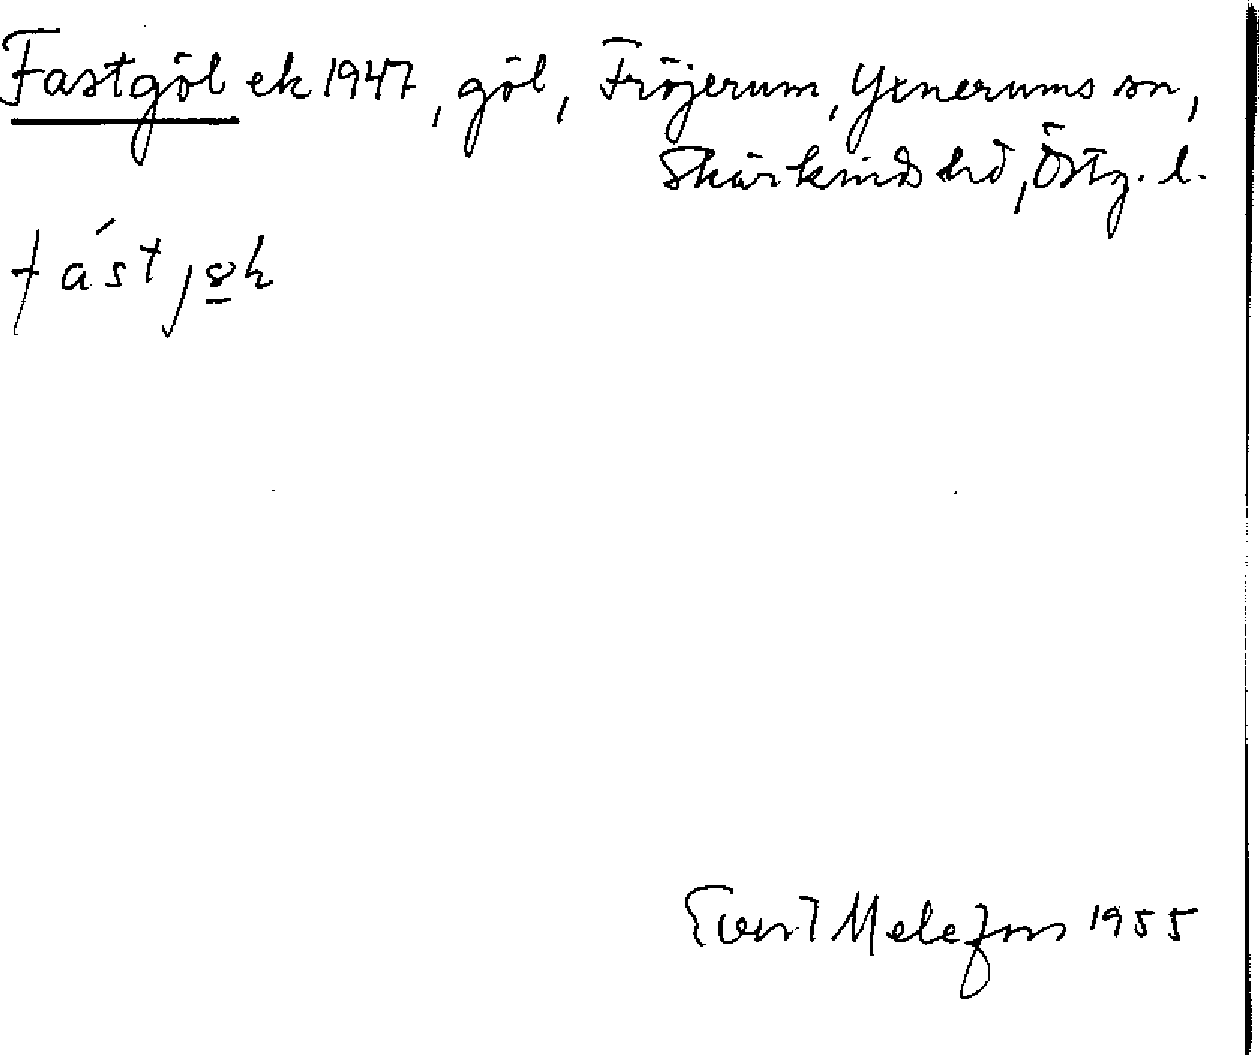 Fastgöl ek 1947, göl, Fröjerum, Yxnerums sn,
Skärkinds hd, Östg. l.
Evert Melefors 1955